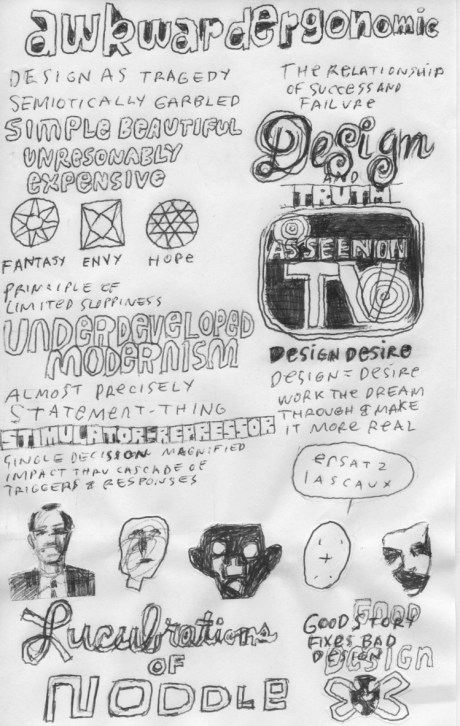 awkwardergonomic
DESIGN AS TRAGEDY
SEMIOTICALLY GARBLED
SIMPLE BEAUTIFUL
UNRESONABLY
EXPENSIVE
FANTASY ENVY HOPE
PRINCIPLE OF
LIMITED SLOPPINESS
UNDERDEVELOPED
MODERNISM
ALMOST PRECISELY
STATEMENT-THING
STIMULATOR-REPRESSOR
SINGLE DECISION MAGNIFIED
IMPACT THRU CASCADE OF
TRIGGERS & RESPONSES
THE RELATIONSHIP
OF SUCCESS AND
FAILURE
Design
AND
TRUTH
AS SEEN ON
TV
DESIGN DESIRE
DESIGN = DESIRE
WORK THE DREAM
THROUGH & MAKE
IT MORE REAL
ersatz
lascaux
Lucubrations
OF
NODDLE
FOOD
GOOD STORY
FIXES BAD
DESIGN
DESIGN